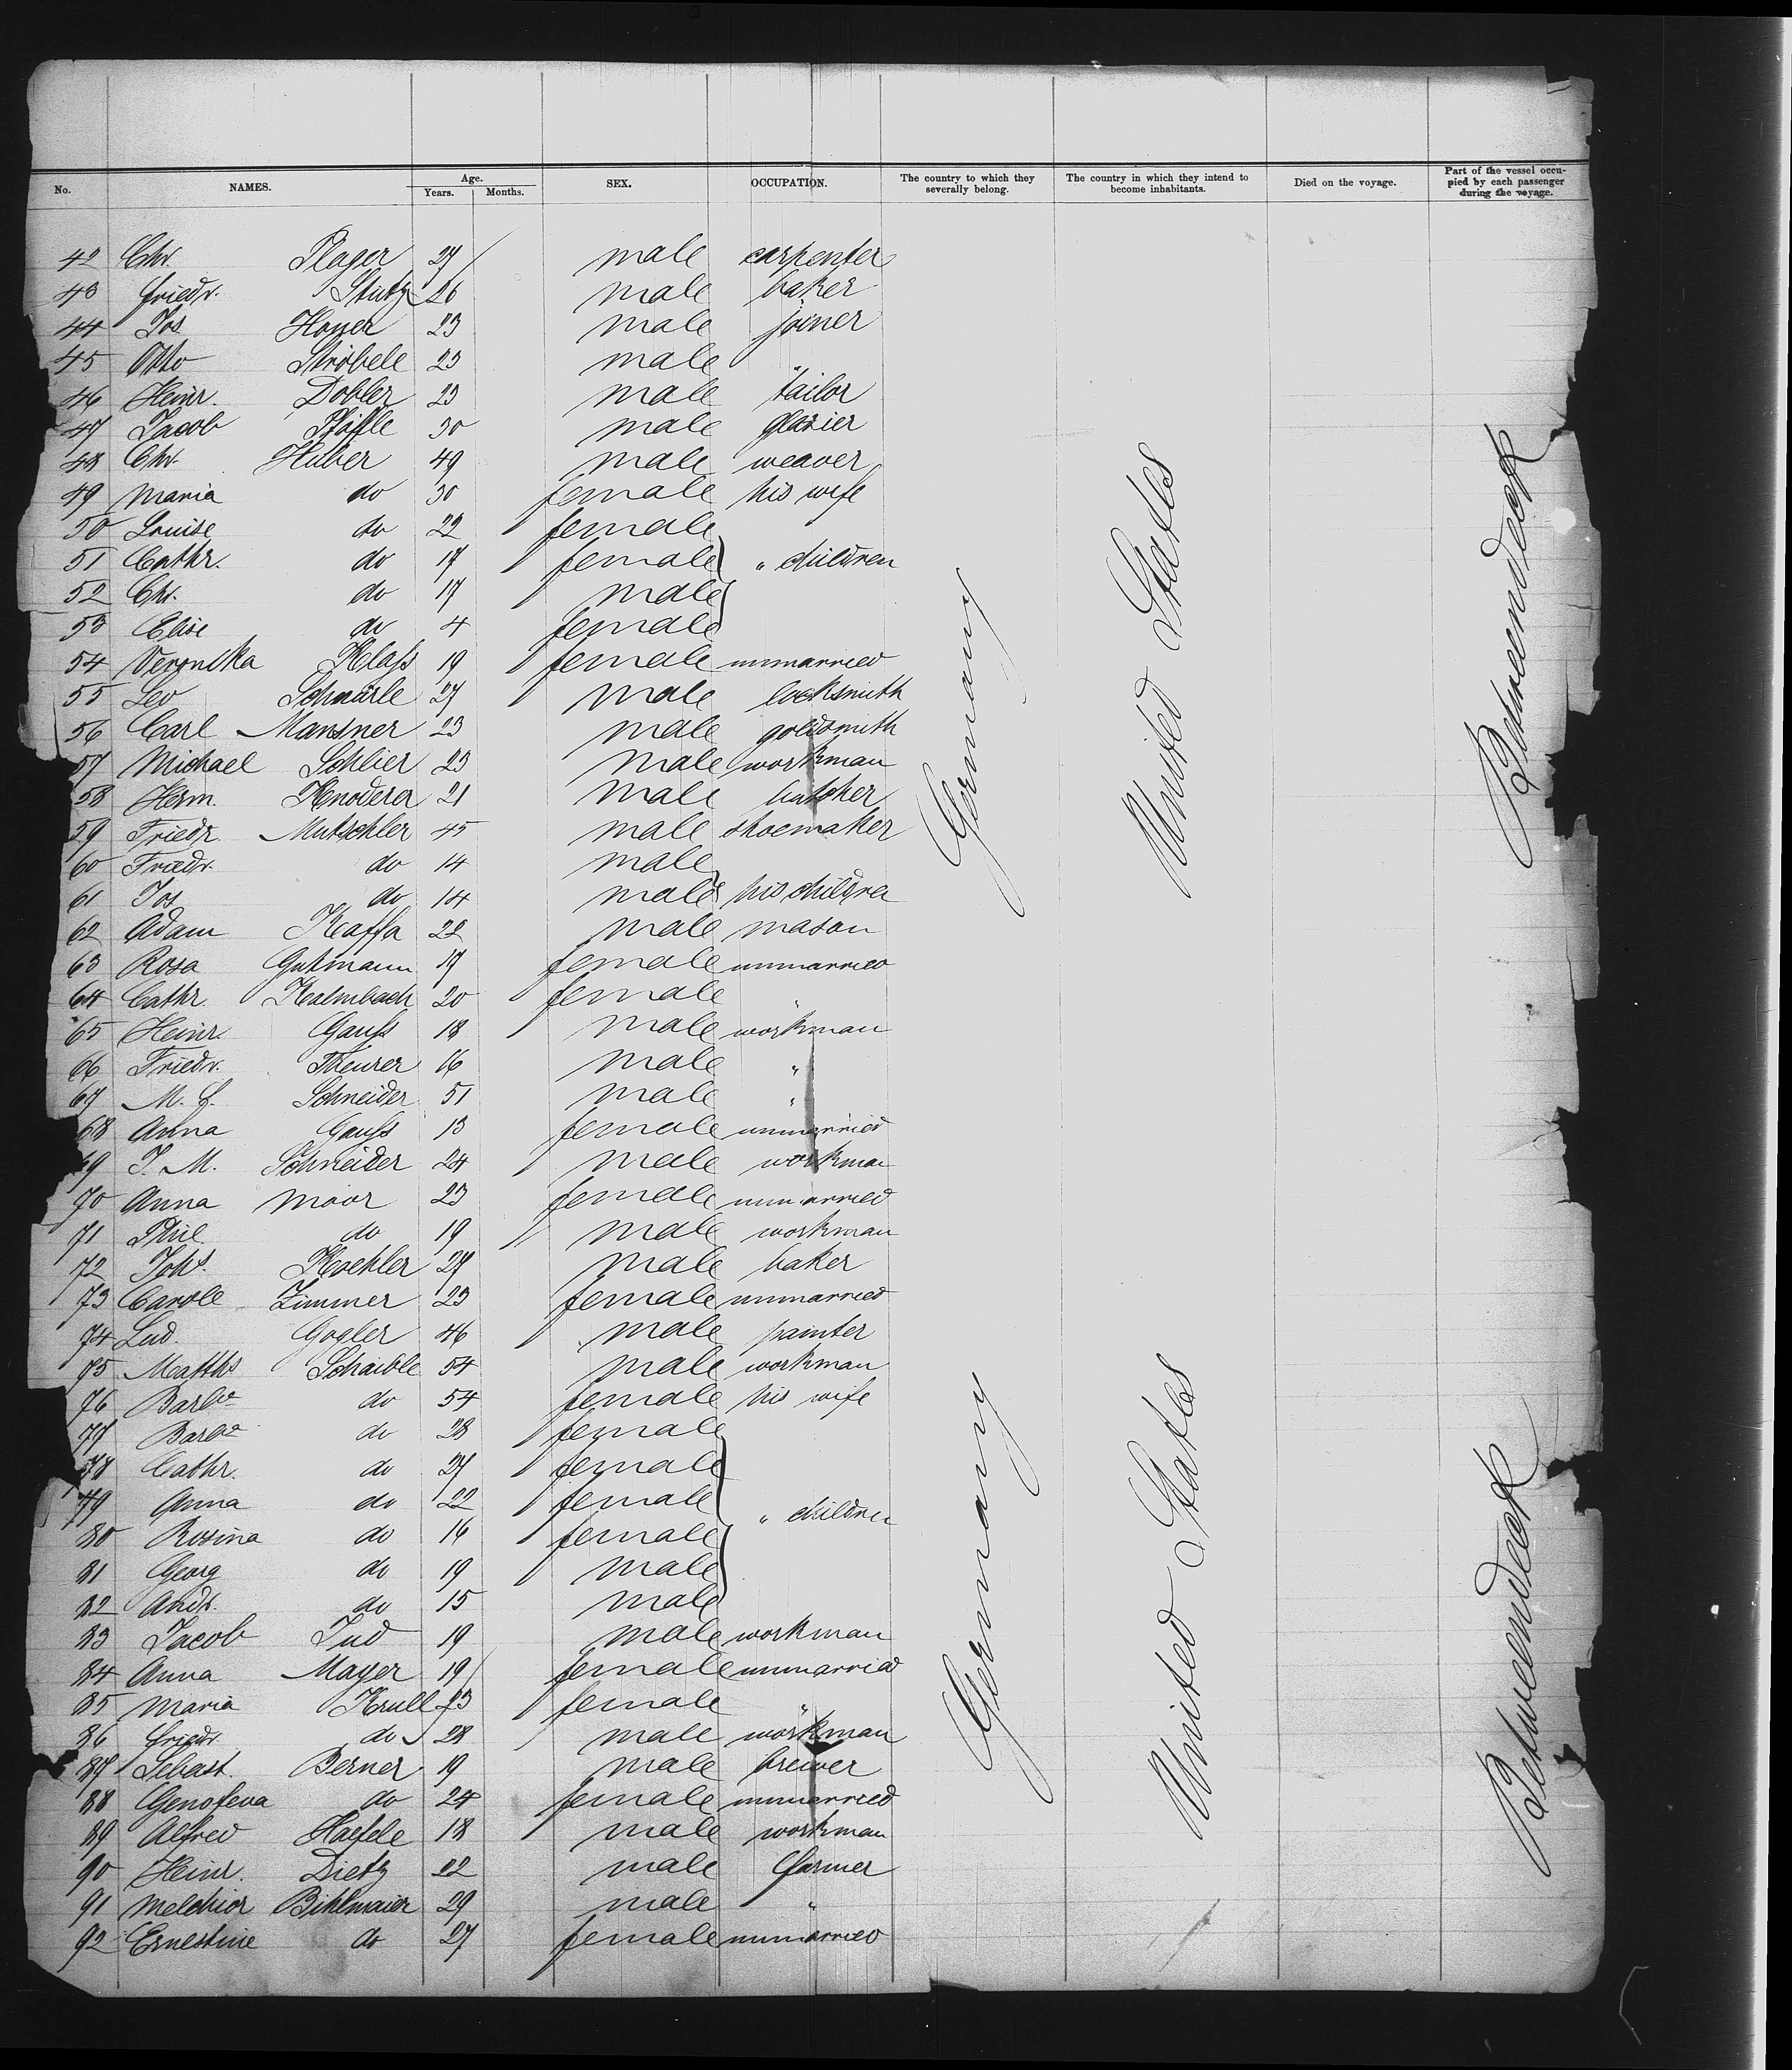 No. NAMES. Age. Years. Months. SEX. OCCUPATION. The country to which they severally belong. The country in which they intend to become inhabitants. Died on the voyage. Part of the vessel occupied by each passenger during the voyage.
42 Chr. Plager 27 male carpenter
43 Friedr. Stutz 26 male baker
44 Jos Honer 23 male joiner
45 Otto Ströbele 23 male "
46 Heinr. Dobler 23 male tailor
47 Jacob 30 male glazier
48 Chr. Huber 49 male weaver
49 Maria do 30 female his wife
50 Louise do 22 female
51 Cathr. do 17 female " children
52 Chr. do 17 male
53 Elise do 4 female
54 Veronika Klaß 19 female unmarried
55 Leo Schnärle 27 male locksmith
56 Carl Mansner 23 male goldsmith
57 Michael Schlier 23 male workman
58 Herm. Knoderer 21 male butcher
59 Friedr. Mutschler 45 male shoemaker
60 Friedr. do 14 male
61 Jos do 14 male his children
62 Adam Kaffa 22 male mason
63 Rosa Gutmann 17 female unmarried
64 Cathr. Kalmbach 20 female "
65 Heinr. Gauß 18 male workman
66 Friedr. Theurer 16 male "
67 M. Schneider 51 male "
68 Anna Gauß 13 female unmarried
69 J. M. Schneider 24 male workman
70 Anna Moor 23 female unmarried
71 Phil. do 19 male workman
72 Johs. Koehler 27 male baker
73 Carole Zimmer 23 female unmarried
74 Lud. Gogler 46 male painter
75 Matths Schaible 54 male workman
76 Barba do 54 female his wife
77 Barba do 28 female
78 Cathr. do 27 female
79 Anna do 22 female " children
80 Rosina do 16 female
81 Georg do 19 male
82 Andr. do 15 male
83 Jacob Jud 19 male workman
84 Anna Mayer 19 female unmarried
85 Maria Krull 23 female "
86 Friedr. do 28 male workman
87 Sebast. Berner 19 male brewer
88 Genofeva do 24 female unmarried
89 Alfred Haefele 18 male workman
90 Heinr. Dietz 22 male farmer
91 Melchior Bihlmaier 29 male "
92 Ernestine do 27 female unmarried
Germany
United States
Betweendeck
Germany
United States
Betweendeck